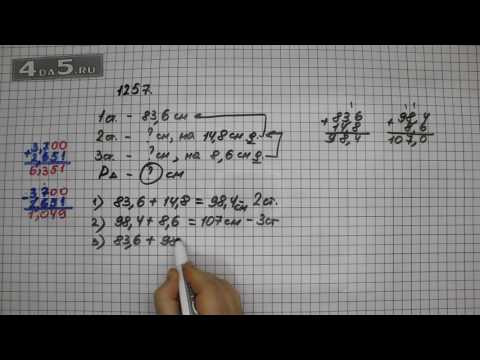 4DA5.RU
1257.
1ст. - 83,6 см
2ст. - ? см, на 14,8 см д.
3ст. - ? см, на 8,6 см д.
P△ - ? см
1) 83,6 + 14,8 = 98,4 см - 2ст.
2) 98,4 + 8,6 = 107 см - 3ст
3) 83,6 + 98
+3,700
2,651
6,351
-3,700
2,651
1,049
1
+83,6
14,8
98,4
1 1
+98,4
8,6
107,0